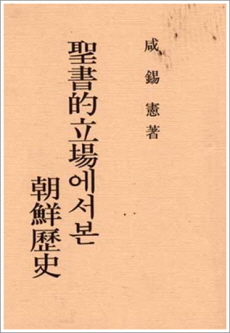 咸錫憲著
聖書的立場에서본
朝鮮歷史